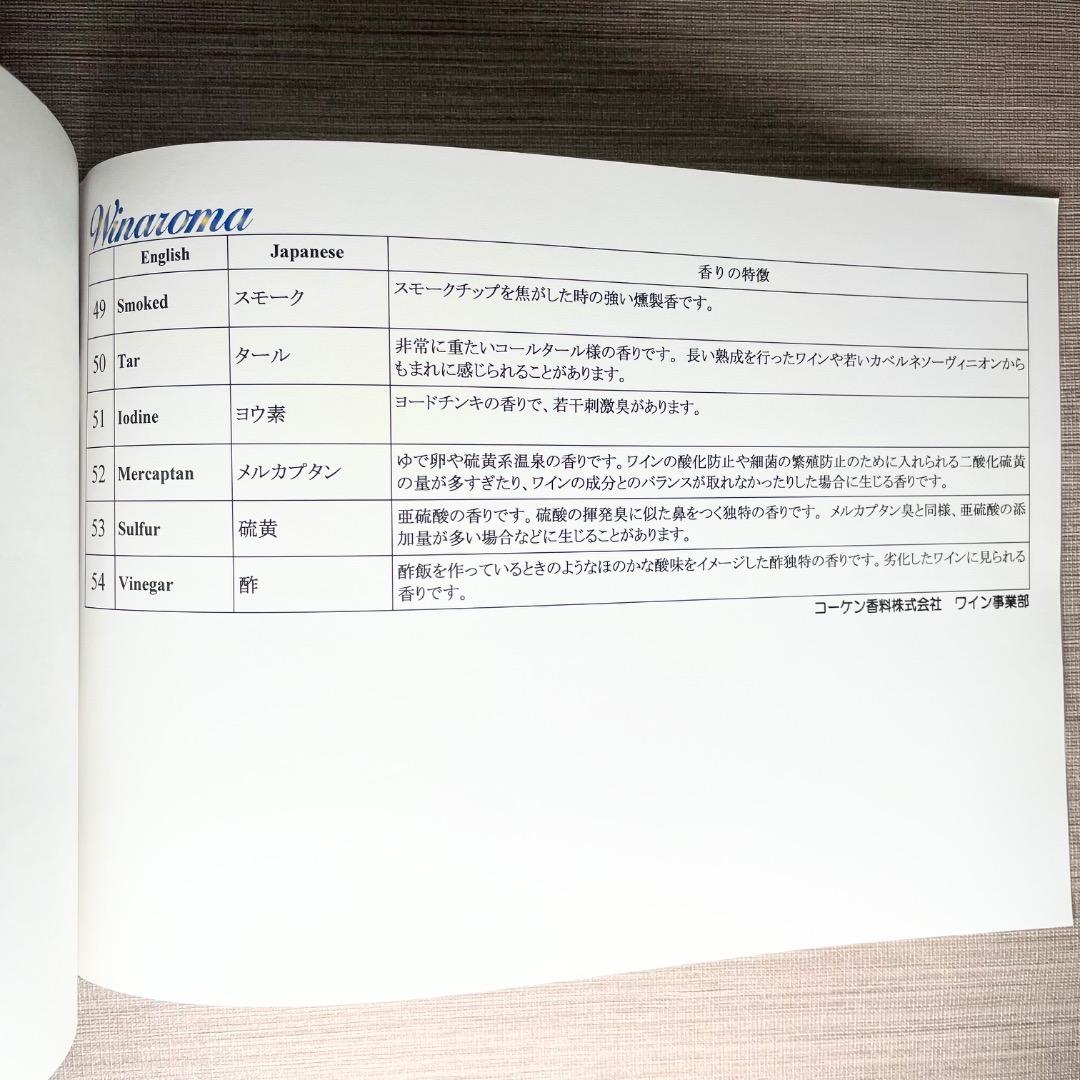 Winaroma
English Japanese 香りの特徴
49 Smoked スモーク スモークチップを焦がした時の強い燻製香です。
50 Tar タール 非常に重たいコールタール様の香りです。 長い熟成を行ったワインや若いカベルネソーヴィニオンから
もまれに感じられることがあります。
51 Iodine ヨウ素 ヨードチンキの香りで、若干刺激臭があります。
52 Mercaptan メルカプタン ゆで卵や硫黄系温泉の香りです。ワインの酸化防止や細菌の繁殖防止のために入れられる二酸化硫黄
の量が多すぎたり、ワインの成分とのバランスが取れなかったりした場合に生じる香りです。
53 Sulfur 硫黄 亜硫酸の香りです。硫酸の揮発臭に似た鼻をつく独特の香りです。 メルカプタン臭と同様、亜硫酸の添
加量が多い場合などに生じることがあります。
54 Vinegar 酢 酢飯を作っているときのようなほのかな酸味をイメージした酢独特の香りです。劣化したワインに見られる
香りです。
コーケン香料株式会社 ワイン事業部